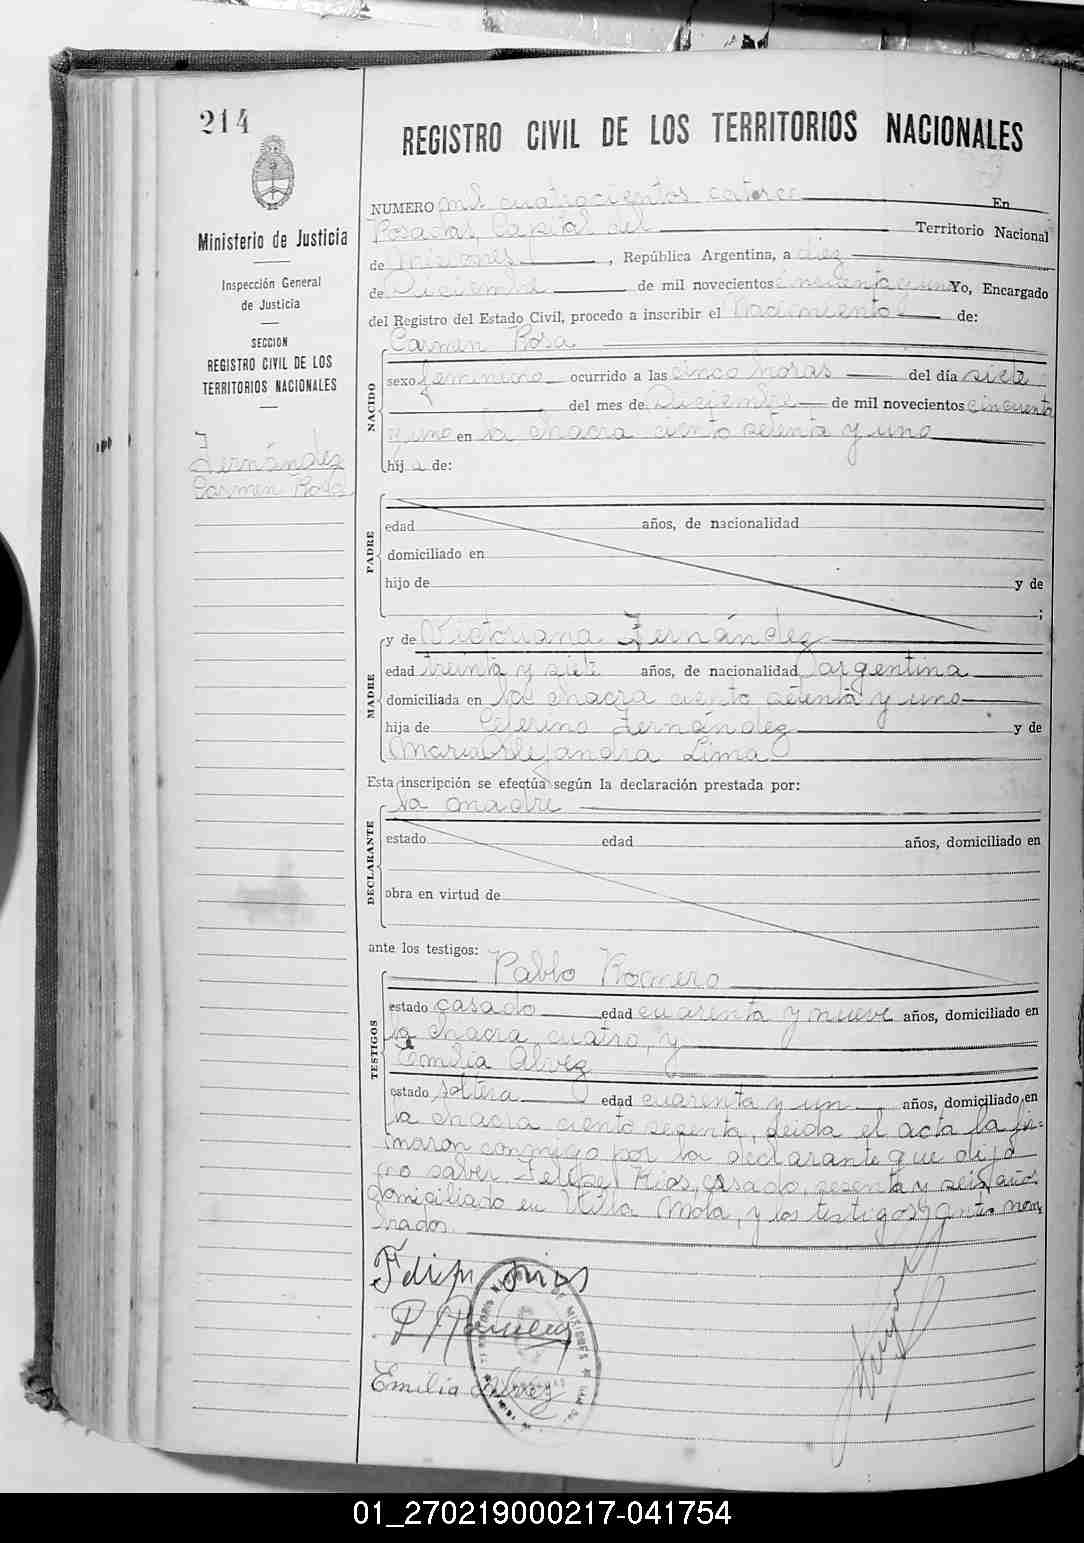 214
REGISTRO CIVIL DE LOS TERRITORIOS NACIONALES
Ministerio de Justicia
Inspección General
de Justicia
SECCION
REGISTRO CIVIL DE LOS
TERRITORIOS NACIONALES
Fernández
Carmen Rosa
NUMERO mil cuatrocientos catorce En
Posadas, Capital del Territorio Nacional
de Misiones, República Argentina, a diez
de Diciembre de mil novecientos cincuenta y uno Yo, Encargado
del Registro del Estado Civil, procedo a inscribir el Nacimiento de:
NACIDO
Carmen Rosa
sexo femenino ocurrido a las cinco horas del día siete
del mes de Diciembre de mil novecientos cincuenta
y uno en la chacra ciento setenta y uno
hija de:
PADRE
edad años, de nacionalidad
domiciliado en
hijo de y de
;
MADRE
y de Victoriana Fernández
edad treinta y siete años, de nacionalidad argentina
domiciliada en la chacra ciento setenta y uno
hija de Ceferino Fernández y de
Maria Alejandra Lima
Esta inscripción se efectúa según la declaración prestada por:
DECLARANTE
la madre
estado edad años, domiciliado en
obra en virtud de
ante los testigos:
TESTIGOS
Pablo Romero
estado casado edad cuarenta y nueve años, domiciliado en
la chacra cuatro, y
Emilia Alvez
estado soltera edad cuarenta y un años, domiciliado en
la chacra ciento sesenta, leida el acta la fir=
maron conmigo por la declarante que dijo
no saber Felipe Rios, casado, sesenta y seis años
domiciliado en Villa Mota, y los testigos antes nom
brados.
Felipe Rios
P. Romero
Emilia Alvez
01_270219000217-041754